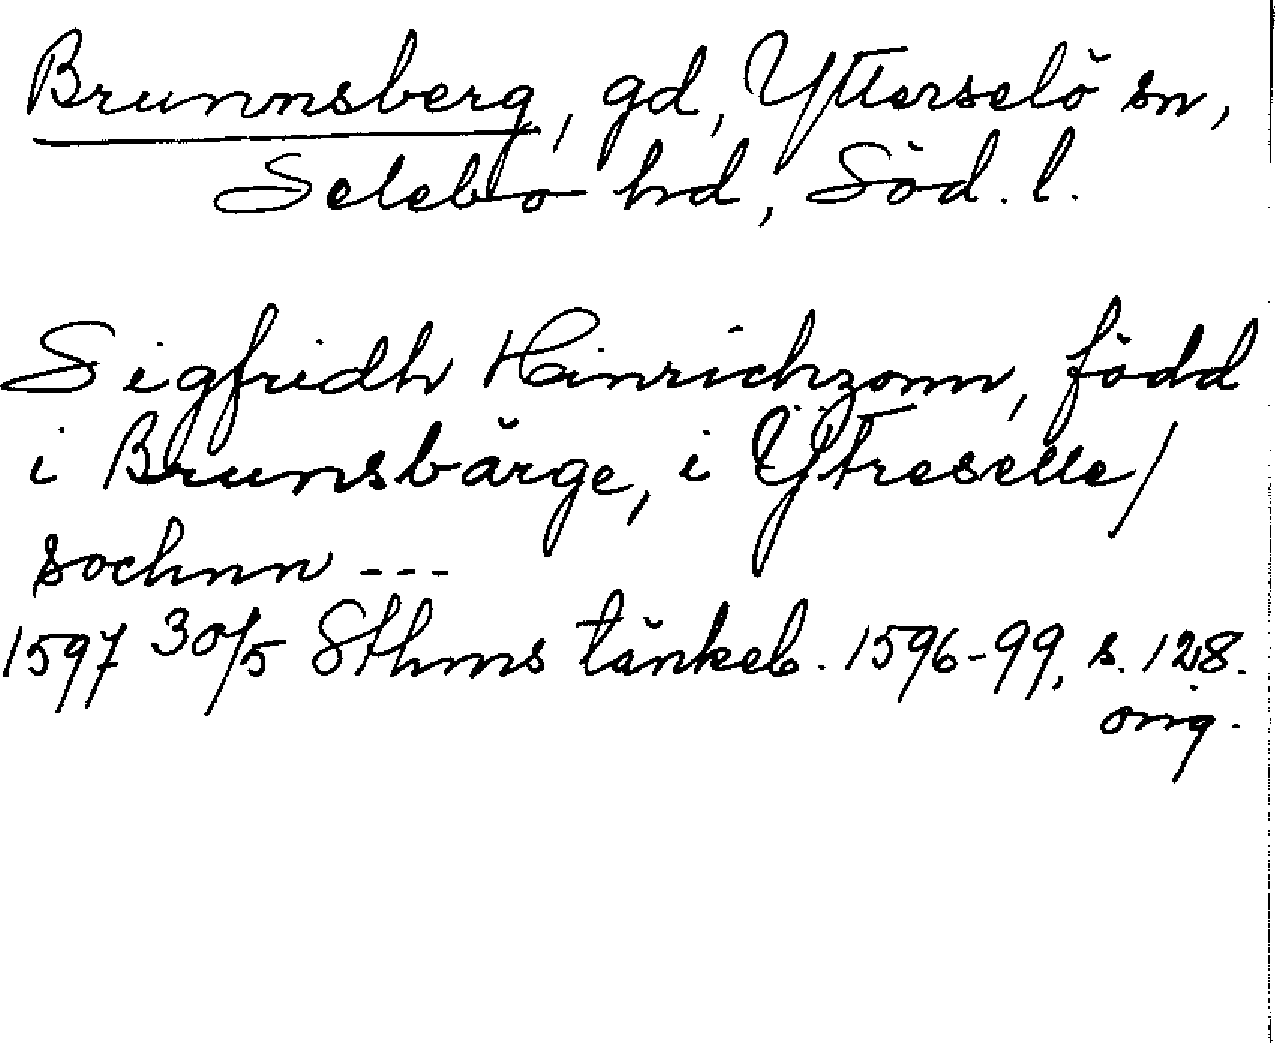 Brunnsberg, gd, Ytterselö sn,
Selebo hd, Söd. l.
Sigfridh Hinrichzonn, född
i Brunsbärge, i Ÿtreselle/
sochnn ---
1597 30/5 Sthms tänkeb. 1596-99, s. 128.
orig.